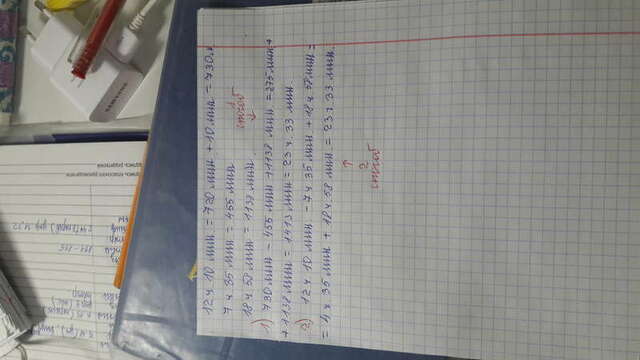 12 ч 10 мин = 720 мин + 10 мин = 730 м
7 ч 35 мин = 455 мин
18 ч 58 мин = 1138 мин.
1 способ
1) 730 мин - 455 мин + 1138 мин = 275 мин +
+ 1138 мин = 1413 мин = 23 ч. 33 мин.
2) 12 ч 10 мин. - 7 ч 35 мин + 18 ч 58 мин =
= 4 ч. 35 мин + 18 ч 58 мин. = 23 ч. 33 мин.
2
способ
SAMSUNG